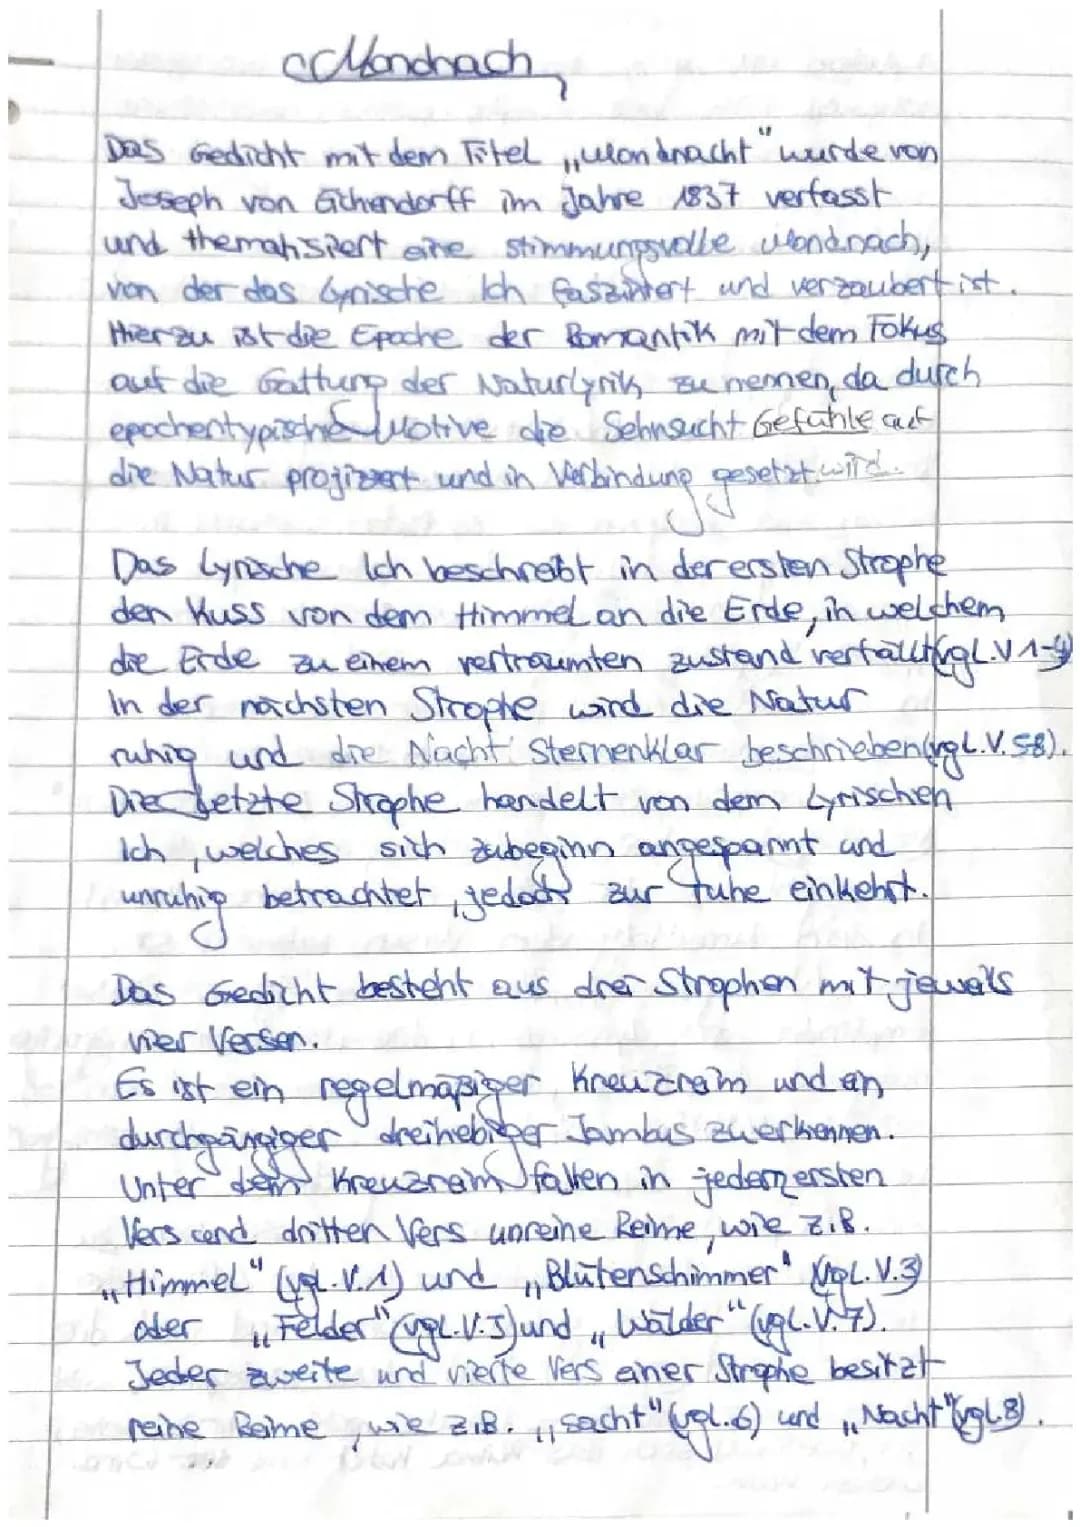 Mondnach
Das Gedicht mit dem Titel „Mondnacht" wurde von
Joseph von Eichendorff im Jahre 1837 verfasst
und thematisiert eine stimmungsvolle Mondnach,
von der das lyrische Ich fasziniert und verzaubert ist.
Hierzu ist die Epoche der Romantik mit dem Fokus
auf die Gattung der Naturlyrik zu nennen, da durch
epochentypische Motive die Sehnsucht Gefühle auf
die Natur projiziert und in Verbindung gesetzt wird.
Das Lyrische Ich beschreibt in der ersten Strophe
den Kuss von dem Himmel an die Erde, in welchem
die Erde zu einem verträumten zustand verfällt (vgl. V 1-4)
In der nächsten Strophe wird die Natur
ruhig und die Nacht Sternenklar beschrieben (vgl. V. 58).
Die Letzte Strophe handelt von dem Lyrischen
Ich, welches sich zubeginn angespannt und
unruhig betrachtet, jedoch zur ruhe einkehrt.
Das Gedicht besteht aus drei Strophen mit jeweils
vier Versen.
Es ist ein regelmäßiger Kreuzreim und ein
durchgängiger dreihebiger Jambus zu erkennen.
Unter dem Kreuzreim fallen in jedem ersten
Vers und dritten Vers unreine Reime, wie z.B.
„Himmel" (vgl. V. 1) und „Blütenschimmer" (vgl. V. 3)
oder „Felder" (vgl. V. 5) und „Wälder" (vgl. V. 7).
Jeder zweite und vierte Vers einer Strophe besitzt
reine Reime, wie z.B. „sacht" (vgl. 6) und „Nacht" (vgl. 8).